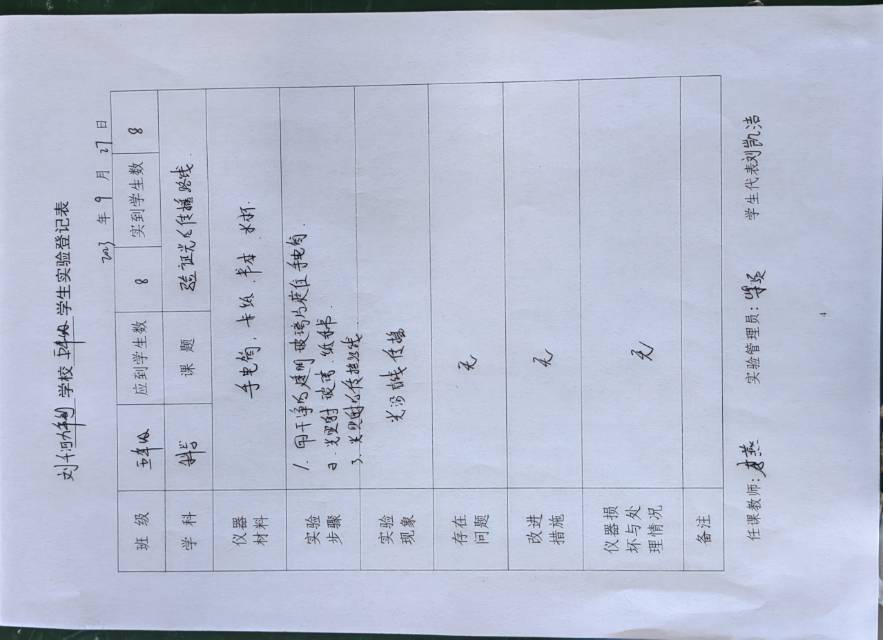 学校 五年级 学生实验登记表
2023 年 9 月 27 日
班 级 五年级 应到学生数 8 实到学生数 8
学 科 科学 课 题 验证光的传播路线
仪器材料 手电筒、卡纸、书本、水杯.
实验步骤 1. 用干净的透明玻璃片卡住手电筒.
2. 光照射 玻璃 纸 书
3. 光照射的传播路线
实验现象 光沿直线传播
存在问题 无
改进措施 无
仪器损坏与处理情况 无
备注
任课教师: 实验管理员: 学生代表 刘凯洁
4